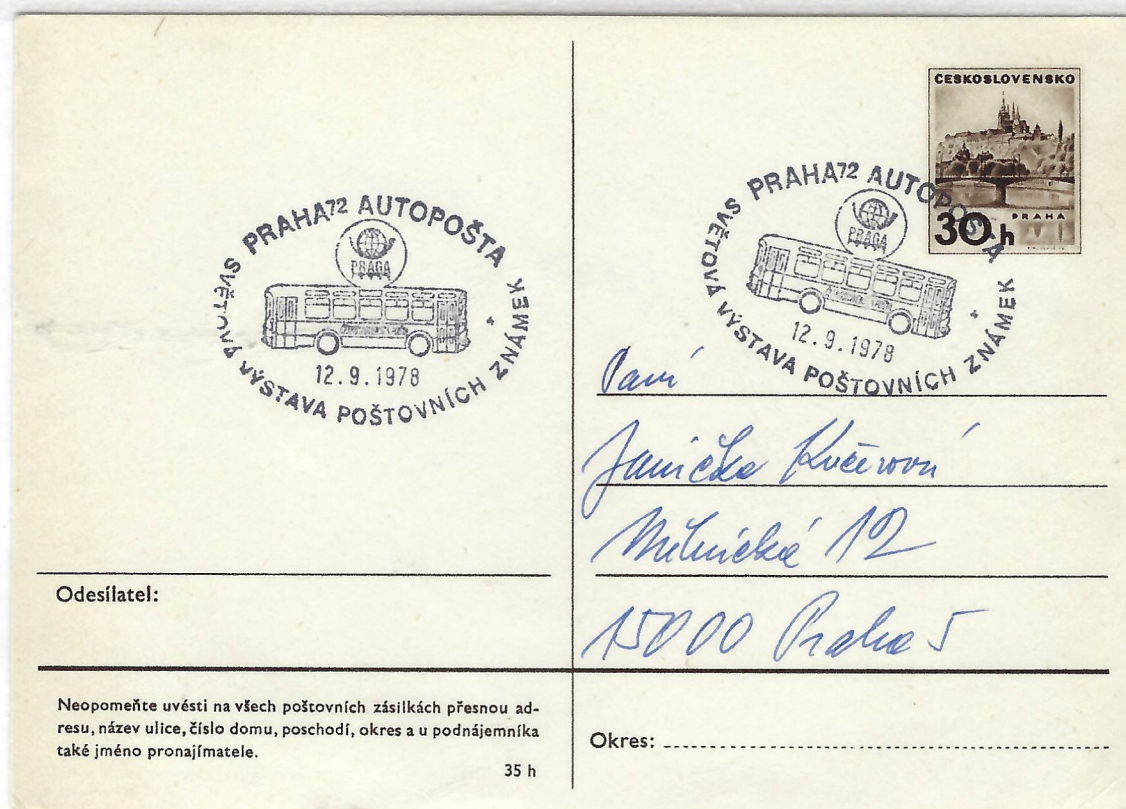 PRAHA72 AUTOPOŠTA
PRAGA
12.9.1978
SVĚTOVÁ VÝSTAVA POŠTOVNÍCH ZNÁMEK
Odesílatel:
Neopomeňte uvésti na všech poštovních zásilkách přesnou ad-
resu, název ulice, číslo domu, poschodí, okres a u podnájemníka
také jméno pronajímatele.
35 h
ČESKOSLOVENSKO
PRAHA
30 h
PRAHA72 AUTOPOŠTA
PRAGA
12.9.1978
SVĚTOVÁ VÝSTAVA POŠTOVNÍCH ZNÁMEK
Paní
Janička Kučerová
Mělnická 12
15000 Praha 5
Okres: